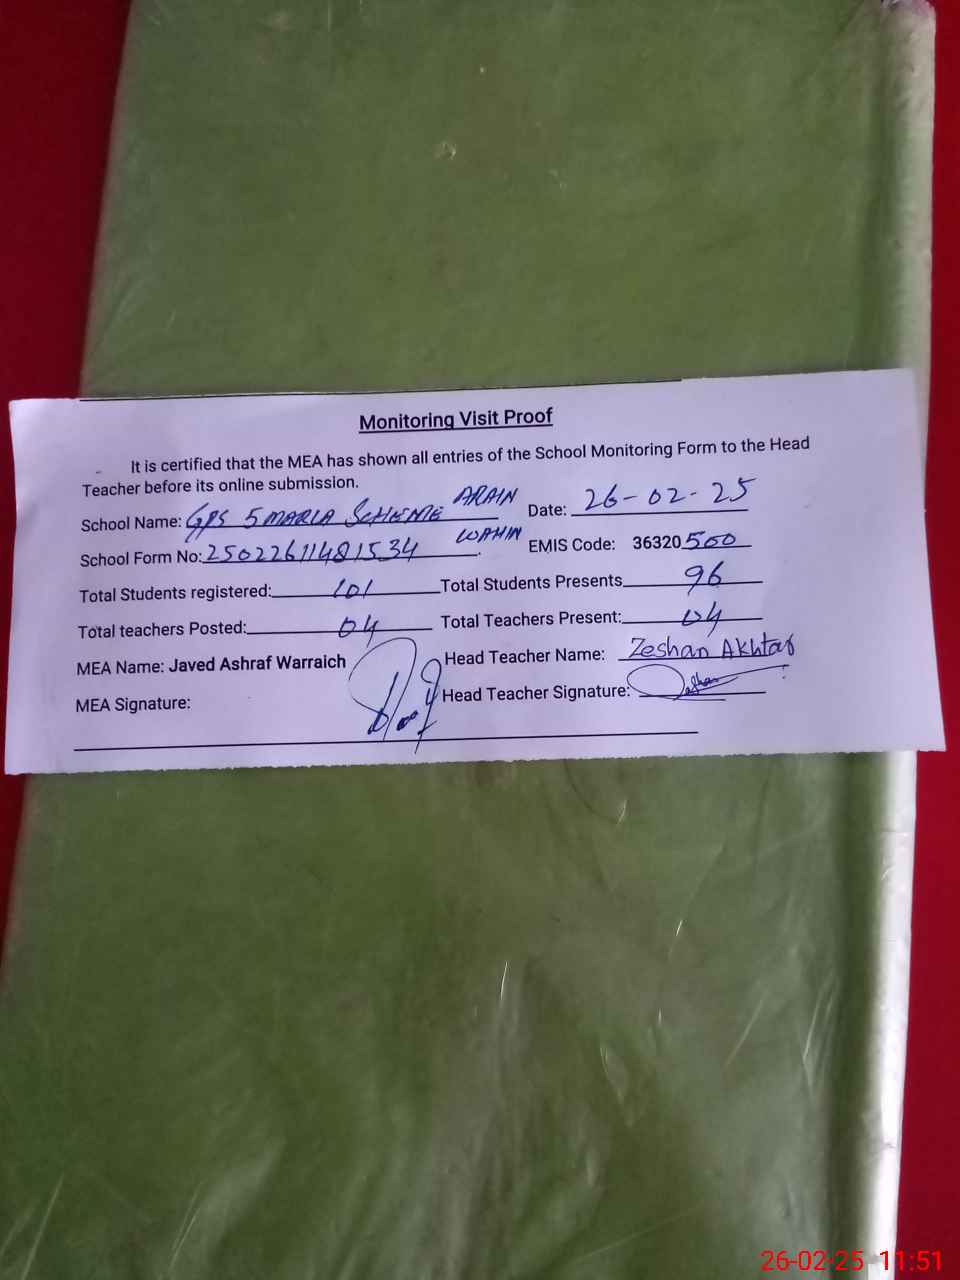 Monitoring Visit Proof
It is certified that the MEA has shown all entries of the School Monitoring Form to the Head
Teacher before its online submission.
School Name: GPS 5 MARLA SCHEME ARAIN WAHIN
Date: 26-02-25
School Form No: 25022611481534
EMIS Code: 36320500
Total Students registered: 101
Total Students Presents 96
Total teachers Posted: 04
Total Teachers Present: 04
MEA Name: Javed Ashraf Warraich
Head Teacher Name: Zeshan Akhtar
MEA Signature:
Head Teacher Signature:
26-02-25 11:51